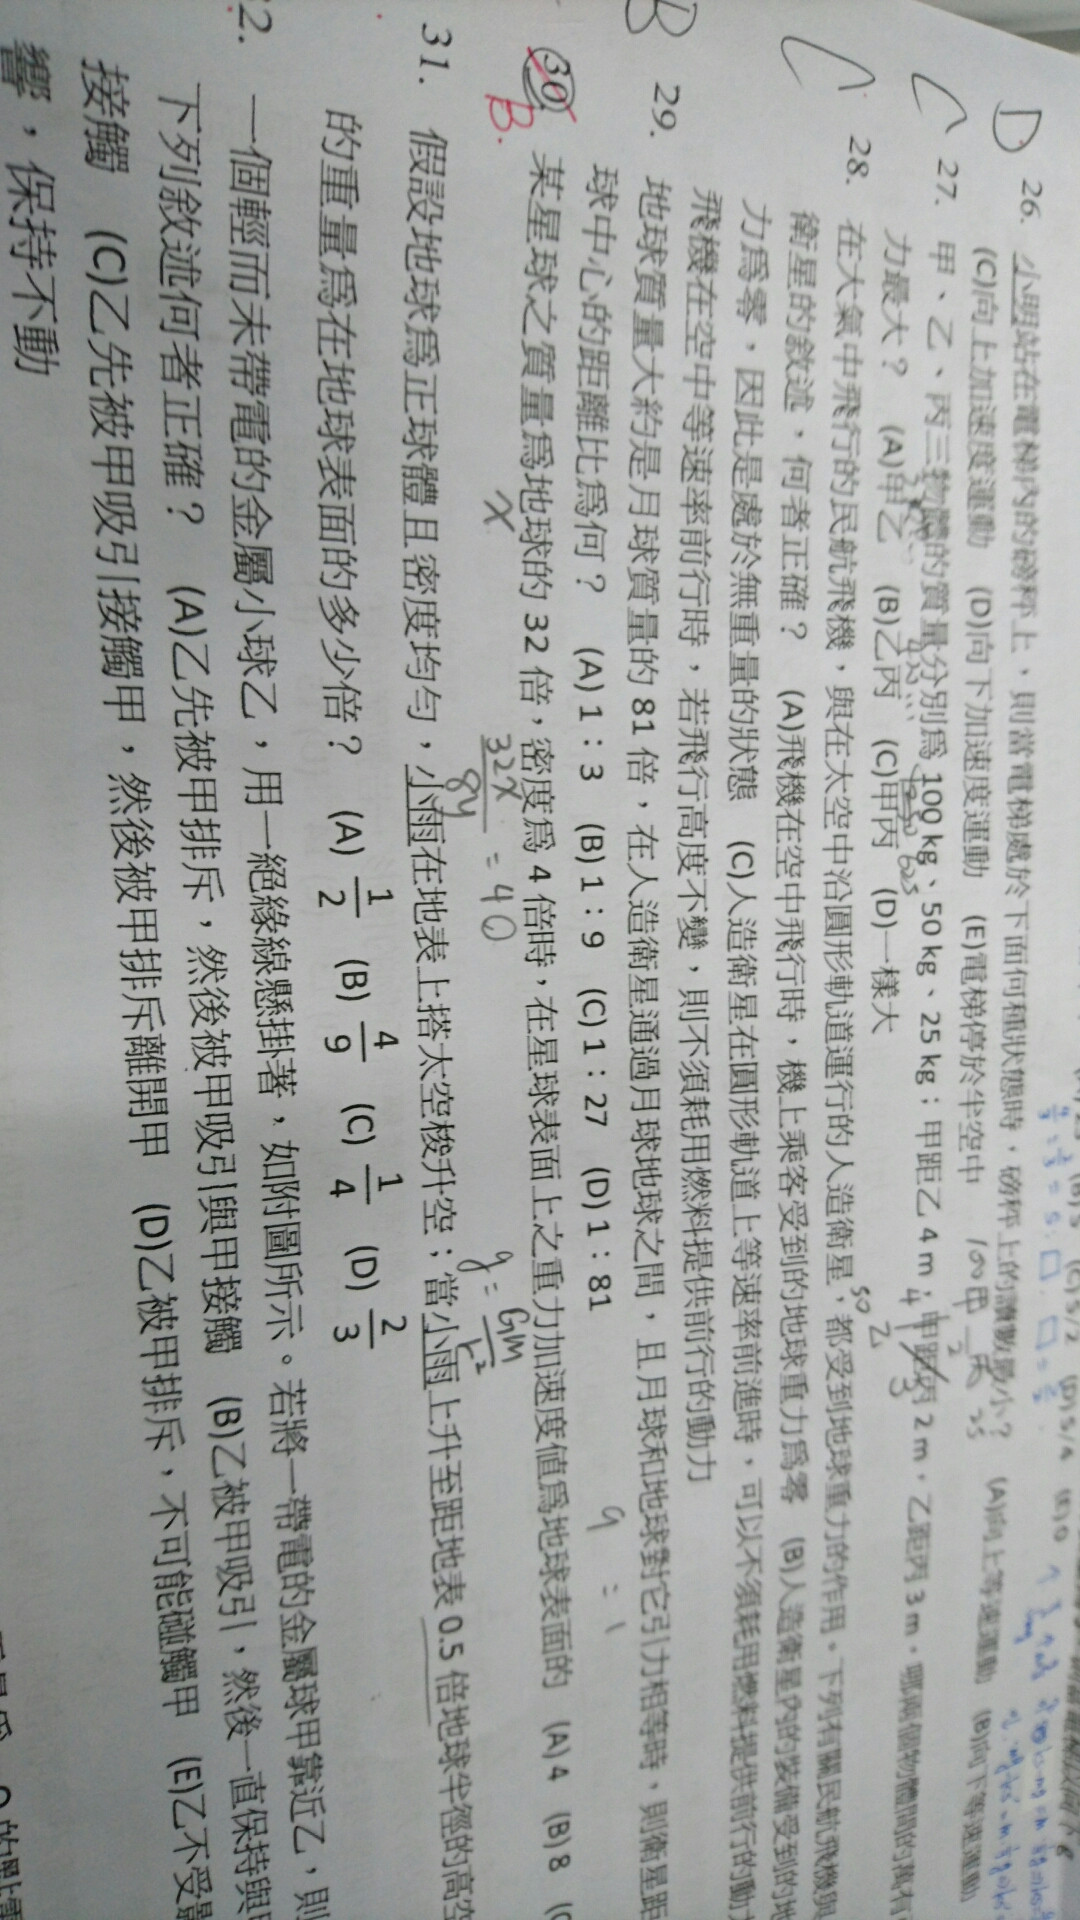 26. 小明站在電梯內的磅秤上，則當電梯處於下面何種狀態時，磅秤上的讀數最小？ (A)向上等速運動 (B)向下等速運動
(C)向上加速度運動 (D)向下加速度運動 (E)電梯停於半空中
27. 甲、乙、丙三物體的質量分別為 100 kg、50 kg、25 kg；甲距乙 4 m，甲距丙 2 m，乙距丙 3 m。哪兩個物體間的萬有
力最大？ (A)甲乙 (B)乙丙 (C)甲丙 (D)一樣大
28. 在大氣中飛行的民航飛機，與在太空中沿圓形軌道運行的人造衛星，都受到地球重力的作用。下列有關民航飛機與
衛星的敘述，何者正確？ (A)飛機在空中飛行時，機上乘客受到的地球重力為零 (B)人造衛星內的裝備受到的地
力為零，因此是處於無重量的狀態 (C)人造衛星在圓形軌道上等速率前進時，可以不須耗用燃料提供前行的動
飛機在空中等速率前行時，若飛行高度不變，則不須耗用燃料提供前行的動力
29. 地球質量大約是月球質量的 81 倍，在人造衛星通過月球地球之間，且月球和地球對它引力相等時，則衛星距
球中心的距離比為何？ (A) 1：3 (B) 1：9 (C) 1：27 (D) 1：81
30 某星球之質量為地球的 32 倍，密度為 4 倍時，在星球表面上之重力加速度值為地球表面的 (A) 4 (B) 8
B.
x
32x
8y
= 40
g = GM
r²
31. 假設地球為正球體且密度均勻，小雨在地表上搭太空梭升空；當小雨上升至距地表 0.5 倍地球半徑的高空
的重量為在地球表面的多少倍？ (A) 1/2 (B) 4/9 (C) 1/4 (D) 2/3
2. 一個輕而未帶電的金屬小球乙，用一絕緣線懸掛著，如附圖所示。若將一帶電的金屬球甲靠近乙，則
下列敘述何者正確？ (A)乙先被甲排斥，然後被甲吸引與甲接觸 (B)乙被甲吸引，然後一直保持與
接觸 (C)乙先被甲吸引接觸甲，然後被甲排斥離開甲 (D)乙被甲排斥，不可能碰觸甲 (E)乙不受
響，保持不動